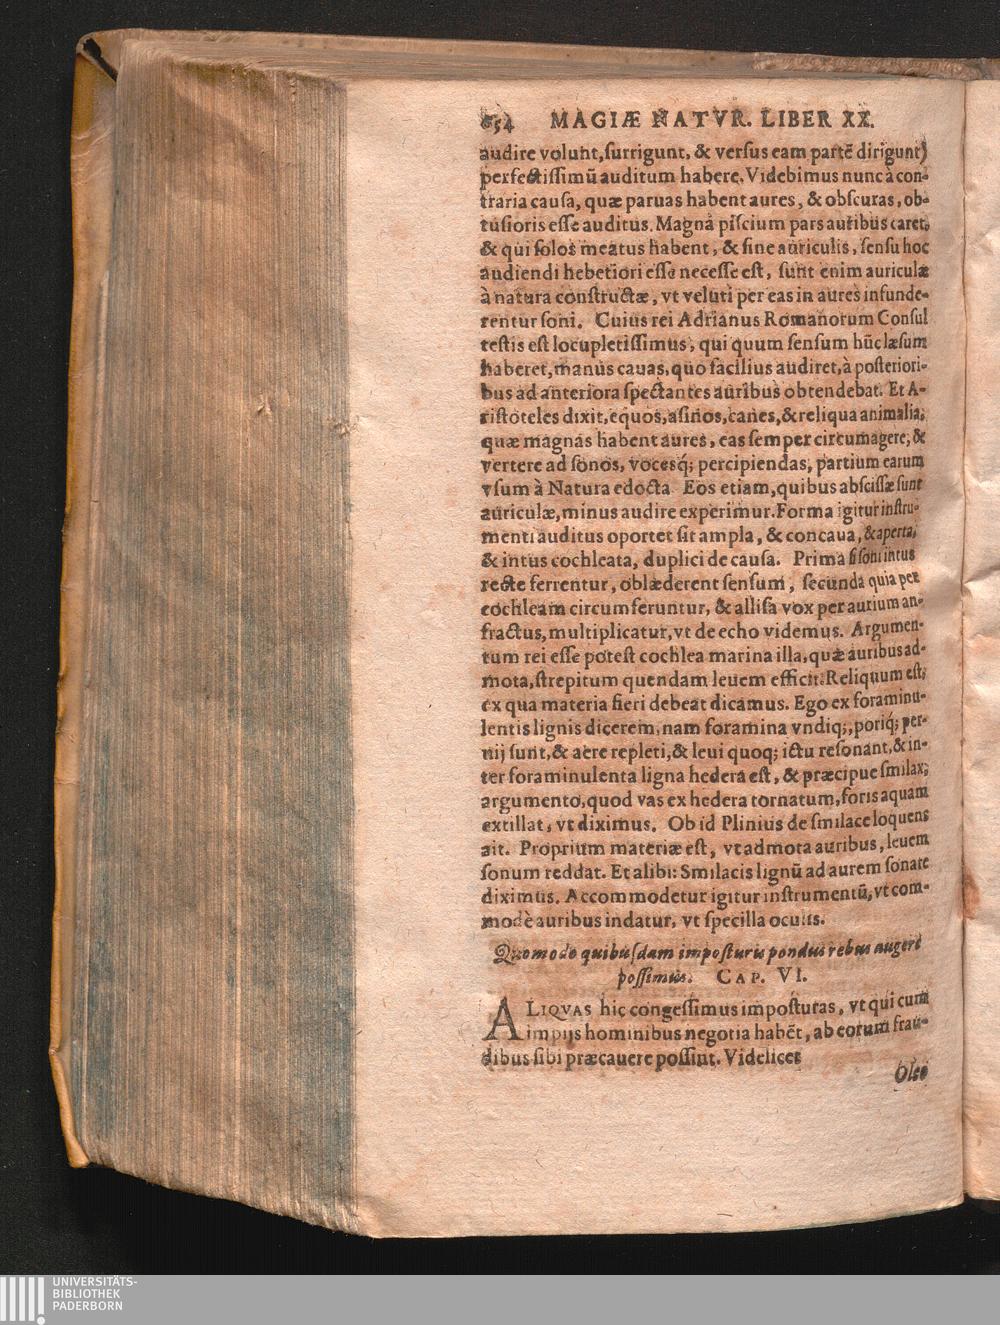 654 MAGIÆ NATVR. LIBER XX.
audire volunt, ſurrigunt, & verſus eam partē dirigunt)
perfectiſſimū auditum habere. Videbimus nunc à con-
traria cauſa, quæ paruas habent aures, & obſcuras, ob-
tuſioris eſſe auditus. Magna piſcium pars auribus caret,
& qui ſolos meatus habent, & ſine auriculis, ſenſu hoc
audiendi hebetiori eſſe neceſſe eſt, ſunt enim auriculæ
à natura conſtructæ, vt veluti per eas in aures infunde-
rentur ſoni. Cuius rei Adrianus Romanorum Conſul
teſtis eſt locupletiſſimus, qui quum ſenſum hūc læſum
haberet, manus cauas, quo facilius audiret, à poſteriori-
bus ad anteriora ſpectantes auribus obtendebat. Et A-
riſtoteles dixit, equos, aſinos, canes, & reliqua animalia,
quæ magnas habent aures, eas ſemper circumagere, &
vertere ad ſonos, vocesq́; percipiendas, partium earum
vſum à Natura edocta. Eos etiam, quibus abſciſſæ ſunt
auriculæ, minus audire experimur. Forma igitur inſtru-
menti auditus oportet ſit ampla, & concaua, & aperta,
& intus cochleata, duplici de cauſa. Prima ſi ſoni intus
recte ferrentur, oblæderent ſenſum, ſecunda quia per
cochleam circumferuntur, & alliſa vox per aurium an-
fractus, multiplicatur, vt de echo videmus. Argumen-
tum rei eſſe poteſt cochlea marina illa, quæ auribus ad-
mota, ſtrepitum quendam leuem efficit. Reliquum eſt,
ex qua materia fieri debeat dicamus. Ego ex foraminu-
lentis lignis dicerem, nam foramina vndiq;, poriq́; per-
uij ſunt, & aere repleti, & leui quoq; ictu reſonant, & in-
ter foraminulenta ligna hedera eſt, & præcipue ſmilax;
argumento, quod vas ex hedera tornatum, foris aquam
extillat, vt diximus. Ob id Plinius de ſmilace loquens
ait. Proprium materiæ eſt, vt admota auribus, leuem
ſonum reddat. Et alibi: Smilacis lignū ad aurem ſonare
diximus. Accommodetur igitur inſtrumentū, vt com-
modè auribus indatur, vt ſpecilla oculis.
Quomodo quibuſdam impoſturis pondus rebus augeri
poſſimus. CAP. VI.
ALIQVAS hic congeſſimus impoſturas, vt qui cum
impijs hominibus negotia habēt, ab eorum frau-
dibus ſibi præcauere poſſint. Videlicet
Oleo
UNIVERSITÄTS-
BIBLIOTHEK
PADERBORN